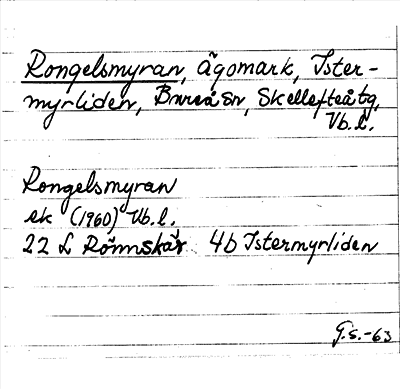 Rongelsmyran, ägomark, Ister-
myrliden, Bureå sn, Skellefteå tg,
Vb.l.
Rongelsmyran
ek (1960) Vb.l.
22 L Rönnskär 4b Istermyrliden
G.S.-63